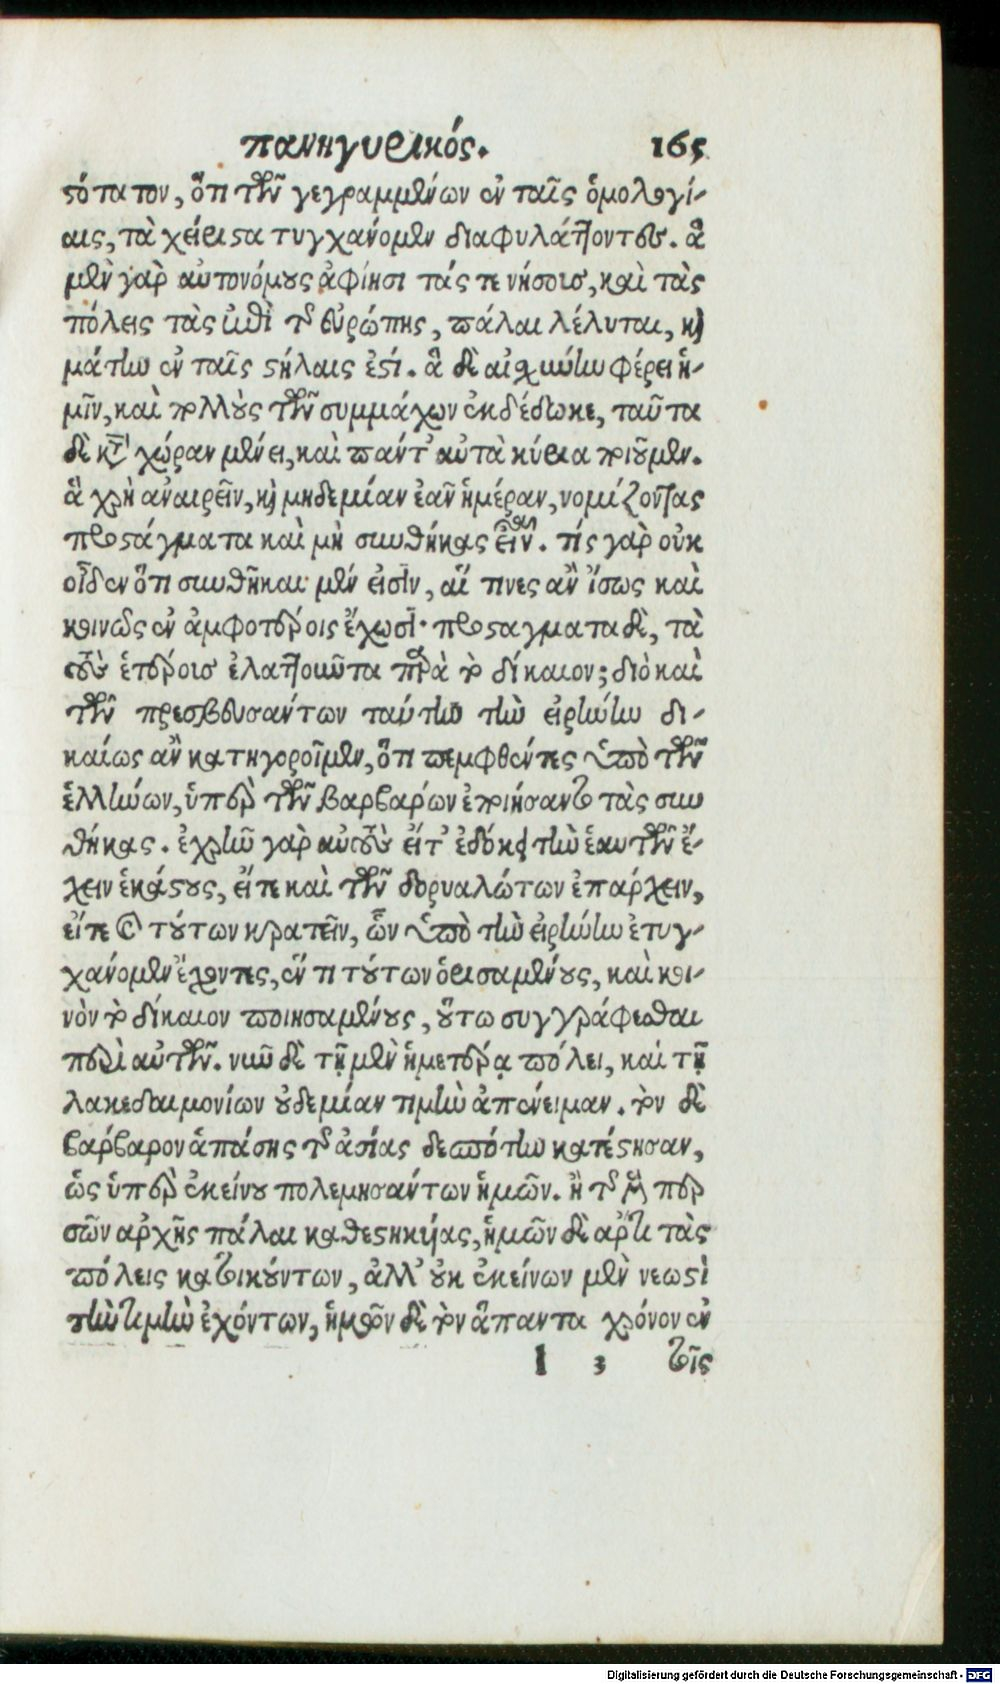 πανηγυρικός. 165
στότατον, ὅτι τῶν γεγραμμένων ἐν ταῖς ὁμολογί-
αις, τὰ χείριστα τυγχάνομεν διαφυλάττοντες. ἃ
μὲν γὰρ αὐτονόμους ἀφίησι τάς τε νήσοις, καὶ τὰς
πόλεις τὰς ἐπὶ τῆς εὐρώπης, πάλαι λέλυται, καὶ
μάτην ἐν ταῖς στήλαις ἐστί. ἃ δὲ αἰσχύνην φέρει ἡ-
μῖν, καὶ πολλοὺς τῶν συμμάχων ἐκδέδωκε, ταῦτα
δὲ κατὰ χώραν μένει, καὶ πάντ' αὐτὰ κύρια ποιοῦμεν.
ἃ χρὴ ἀναιρεῖν, καὶ μηδεμίαν ἐᾶν ἡμέραν, νομίζοντας
προστάγματα καὶ μὴ συνθήκας εἶναι. τίς γὰρ οὐκ
οἶδεν ὅτι συνθῆκαι μέν εἰσιν, αἵ τινες ἂν ἴσως καὶ
κοινῶς ἐν ἀμφοτέροις ἔχωσι· προσταγματα δὲ, τὰ
τοὺς ἑτέροις ἐλαττοῦντα παρὰ τὸ δίκαιον; διὸ καὶ
τῶν πρεσβευσάντων ταύτην τὴν εἰρήνην δι-
καίως ἂν κατηγοροῖμεν, ὅτι πεμφθέντες ὑπὸ τῶν
ἑλλήνων, ὑπὲρ τῶν βαρβάρων ἐποιήσαντο τὰς συν
θήκας. ἐχρῆν γὰρ αὐτοὺς εἴτ' ἐδόκει τὴν ἑαυτῶν ἔ-
χειν ἑκάστους, εἴτε καὶ τῶν δορυαλώτων ἐπάρχειν,
εἴτε τούτων κρατεῖν, ὧν ὑπὸ τὴν εἰρήνην ἐτυγ-
χάνομεν ἔχοντες, ἕν τι τούτων ὁρισαμένους, καὶ κοι-
νὸν τὸ δίκαιον ποιησαμένους, οὕτω συγγράφεσθαι
περὶ αὐτῶν. νῦν δὲ τῇ μὲν ἡμετέρᾳ πόλει, καὶ τῇ
λακεδαιμονίων οὐδεμίαν τιμὴν ἀπένειμαν. τὸν δὲ
βάρβαρον ἁπάσης τῆς ἀσίας δεσπότην κατέστησαν,
ὡς ὑπὲρ ἐκείνου πολεμησάντων ἡμῶν. ἢ τῆς μὲν περ
σῶν ἀρχῆς πάλαι καθεστηκυίας, ἡμῶν δὲ ἄρτι τὰς
πόλεις κατοικούντων, ἀλλ' οὐκ ἐκείνων μὲν νεωστὶ
τὴν τιμὴν ἐχόντων, ἡμῶν δὲ τὸν ἅπαντα χρόνον ἐν
l 3 τοῖς
Digitalisierung gefördert durch die Deutsche Forschungsgemeinschaft - DFG